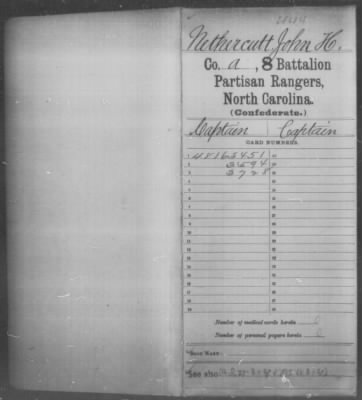 Nethercutt, John H.
Co. A, 8 Battalion
Partisan Rangers,
North Carolina.
(Confederate.)
Captain Captain
CARD NUMBERS.
1 48163451
2 3594
3 3728
Number of medical cards herein 0
Number of personal papers herein 0
BOOK MARK:
See also